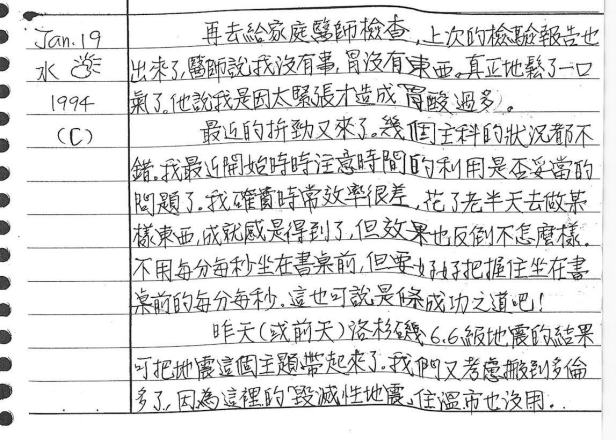 Jan. 19
水
1994
(C)
再去給家庭醫師檢查，上次的檢驗報告也
出來了，醫師說我沒有事，胃沒有東西。真正地鬆了一口
氣了。他說我是因太緊張才造成「胃酸過多」。
最近的拚勁又來了。幾個主科的狀況都不
錯。我最近開始時時注意時間的利用是否妥當的
問題了。我確實時常效率很差，花了老半天去做某
樣東西，成就感是得到了，但效果也反倒不怎麼樣。
不用每分每秒坐在書桌前，但要好好把握住坐在書
桌前的每分每秒。這也可說是條成功之道吧！
昨天(或前天)洛杉磯6.6級地震的結果
可把地震這個主題帶起來了。我們又考慮搬到多倫
多了，因為這裡的「毀滅性地震」，住溫市也沒用..